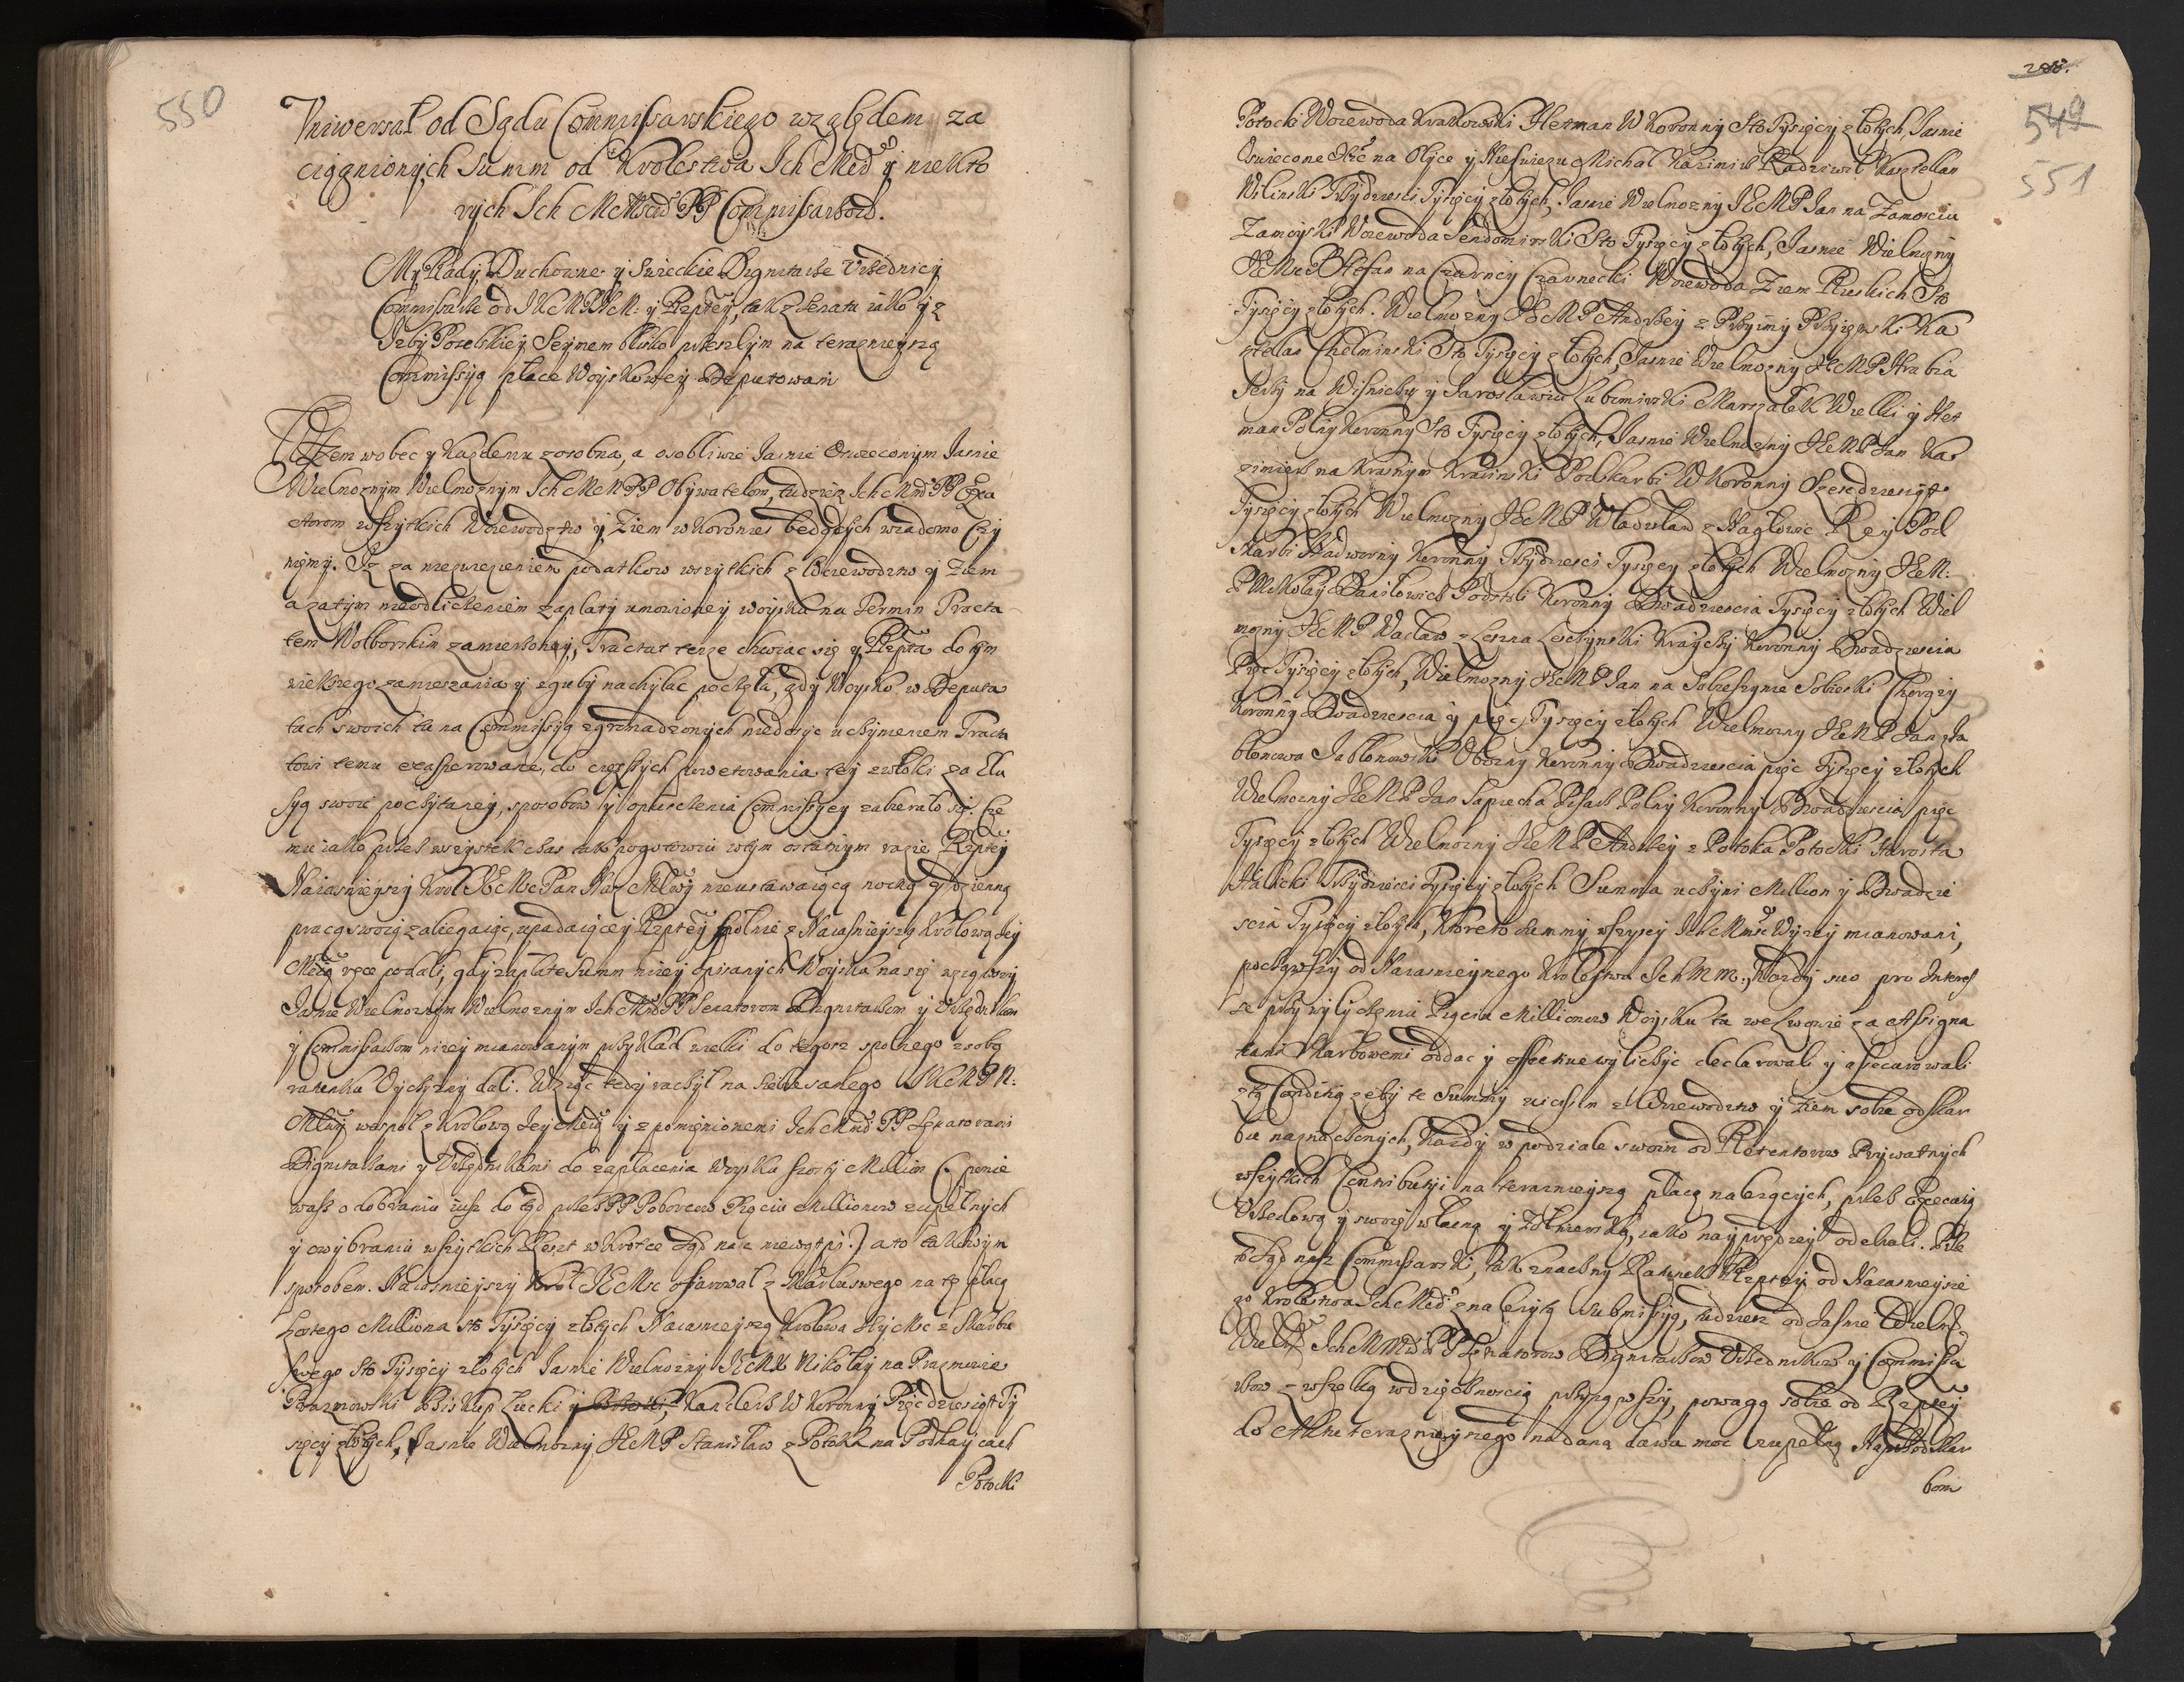 550
Vniwersał od Sądu Commissarskiego względem za
ciągnionych Summ od Krolestwa Ich Mciow y niekto
rych Ich Mciow PP Commissarzow.
My Rady Duchowne y Swieckie Dignitarze Vrzędnicy
Commissarze od JKMPNM: y Rzptey, tak z Senatu iako y z
Izby Poselskiey Seymem blisko przeszłym na terazniejszą
Commissyą płace Woyskowey Deputowani
Wszem wobec y Każdemu zosobna, a osobliwie Jasnie Oswieconym Jasnie
Wielmoznym Wielmoznym Ich MM PP Obywatelom, tudziesz Ich Mciom PP Exa
ctorom wszytkich Woiewodztw y Ziem w Koronie będących wiadomo Czy
niemy. Iz za niezniesieniem podatkow wszytkich z Woiewodztw y Ziem
a zatym nieodliczeniem zapłaty umowioney woysku na Termin Tracta
tem Wolborskim zamierzoney, Tractat tenze chwiac się y Rzpta do tym
większego zamieszania y zguby nachylac poczęła, gdy Woysko w Deputa
tach swoich tu na Commissyą zgromadzonych niedosyc uczynieniem Tracta
towi temu exasperowane, do cięższych powetowania tey zwłoki za Elu
syą swoie poczytaney, sposobow y opuszczenia Commissyey zabierało się. Cze
mu iako przez wszystek czas tak pogotowiu w tym ostatnym razie Rzptey
Naiasnieyszy Krol JEMsc Pan Nasz Młwy nieustawaiącą nocną y dzienną
pracą swoią zabiegaiąc, upadaiącey Rzptey spolnie z Naiasnieyszą Krolową Jey
Mcią ręce podali, gdy zapłate Summ nizey opisanych Woysku na się wziąwszy
Jasnie Wielmoznym Wielmoznym Ich Mciom PP Senatorom Dignitarzom y Vrzędnikom
y Commissarzom nizey mianowanym przykład wielki do tegosz spolnego zsobą
ratunku Oyczyzny dali. Wziąc tedy raczył na Siebie samego JKMPN:
Młwy wespoł z Krolową Jey Mcią y z pomienionemi Ich Mciami PP Senatorami
Dignitarzami y Vrzędnikami do zapłacenia Woysku szosty Million (: ponie
wasz o dobraniu iusz do tąd przez PP Poborcow Pięciu Millionow zupełnych
y o wybraniu wszytkich Reszt w krotce Sąd nasz niewątpi :) a to takowym
sposobem. Naiasnieyszy Krol JEMsc ofiarował z Skarbu swego na tę płacą
szostego Milliona Sto Tysięcy złotych Naiasnieysza Krolowa Jey Msc z Skarbu
swego Sto Tysięcy złotych Jasnie Wielmozny JEMX Mikołay na Prazmowie
Prazmowski Biskup Łucki y Kanclerz W Koronny Pięcdziesiąt Ty
sięcy złotych, Jasnie Wielmozny JEMP Stanisław z Potoka na Podhaycach
Potocki
549
551
Potocki Woiewoda Krakowski Hetman W Koronny Sto Tysięcy złotych, Jasnie
Oswiecone Xże na Ołyce y Nieswiezu Michał Kazimierz Radziwił Kasztellan
Wilinski Trzydziesci Tysięcy złotych, Jasnie Wielmozny JEMP Jan na Zamosciu
Zamoyski Woiewoda Sendomirski Sto Tysięcy złotych, Jasnie Wielmozny
JEMP Stefan na Czarncy Czarnecki Woiewoda Ziem Ruskich Sto
Tysięcy złotych. Wielmozny JEMP Andrzey z Przyimy Przyiemski Ka
sztellan Chełminski Sto Tysięcy złotych, Jasnie Wielmozny JEMP Hrabia
Jerzy na Wisniczu y Jarosławiu Lubomirski Marszałek Wielki y Het
man Polny Koronny Sto Tysięcy złotych, Jasnie Wielmozny JEMP Jan Ka
zimierz na Krasnym Krasinski Podskarbi W Koronny Szescdziesiąt
Tysięcy złotych Wielmozny JEMP Władysław z Nagłowic Rey Pod
skarbi Nadworny Koronny Trzydziesci Tysięcy złotych Wielmozny JEM:
P Mikołay Daniłowicz Podstoli Koronny Dwadziescia Tysięcy złotych Wiel
mozny JEMP Wacław z Leszna Leszczynski Krayczy Koronny Dwadziescia
Pięc Tysięcy złotych, Wielmozny JEMP Jan na Sobieszynie Sobieski Chorąży
Koronny Dwadziescia y pięc Tysięcy złotych Wielmozny JEMP Jan z Ja
błonowa Jabłonowski Obozny Koronny Dwadziescia pięc Tysięcy złotych
Wielmozny JEMP Jan Sapiecha Pisarz Polny Koronny Dwadziescia pięc
Tysięcy złotych Wielmozny JEMP Andrzey z Potoka Potocki Starosta
Halicki Trzydziesci Tysięcy złotych Summa uczyni Million y Dwadzie
scia Tysięcy złotych, Ktore to Summy wszyscy Ich Mmsc Wyzey mianowani,
począwszy od Naiasnieyszego Krolestwa Ich MM:, kazdy suo pro Interes
se przy wyliczeniu Pięciu Millionow Woysku tu we Lwowie za Assigna
tiami Skarbowemi oddac y effective wyliczyc declarowali y assecurowali
z tą Conditią zeby te Summy zicisim z Woiewodztw y Ziem sobie od Skar
bu naznaczonych, kazdy w podziale swoim od Retentorow Prywatnych
wszytkich Contributyi na terazniejszą płacą nalezących, przez Execucią
Vrzędową y swoię własną y Zołnierską, iako nayprędzey odebrali. Prze
to Sąd nasz Commissarski, tak znaczny Ratunek Rzptey od Naiasnieysze
go Krolestwa Ich Mciow z nalezytą Submissyą, tudziesz od Jasnie Wielm:
Wielm: Ich Mciow PP Senatorow Dignitarzow Vrzędnikow y Commissa
rzow z wszelką wdzięcznoscią przyiąwszy, powagą sobie od Rzptey
do Aktu terazniejszego nadaną dawa moc zupełną Ichm Podskar
bom